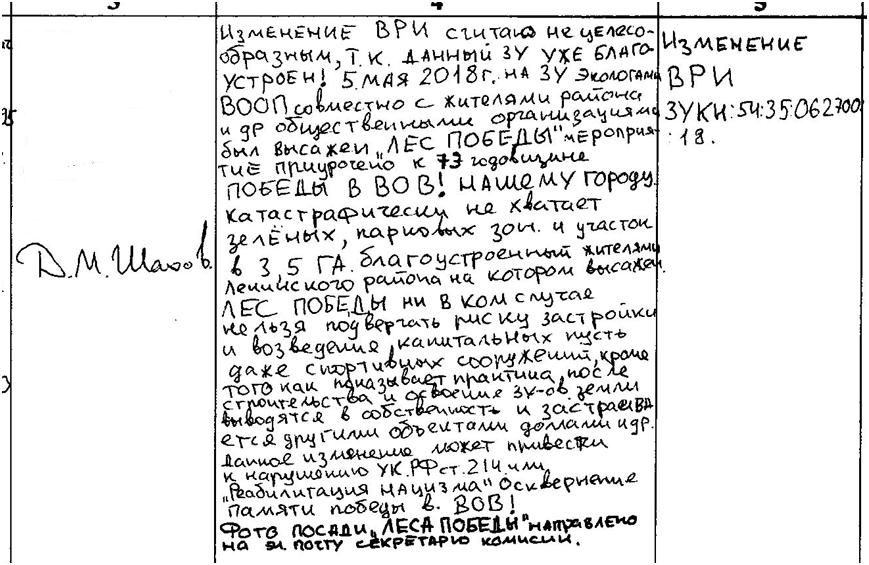 3 4 5
Д.М. Шахов.
Изменение ВРИ считаю не целесо-
образным, т.к. данный ЗУ уже благо-
устроен! 5 мая 2018г. на ЗУ экологами
ВООП совместно с жителями района
и др общественными организациями
был высажен „ЛЕС ПОБЕДЫ" мероприя-
тие приурочено к 73 годовщине
ПОБЕДЫ В ВОВ! НАШЕМУ ГОРОДУ
катастрофически не хватает
зелёных, парковых зон. и участок
в 3,5 ГА. благоустроенный жителями
Ленинского района на котором высажен
ЛЕС ПОБЕДЫ ни в ком случае
нельзя подвергать риску застройки
и возведения капитальных пусть
даже спортивных сооружений, кроме
того как показывает практика, после
строительства и освоение ЗУ-ов земли
выводятся в собственность и застраива
ется другими объектами домами и др.
Данное изменение может привести
к нарушению УК.РФ ст.214 или
„Реабилитация нацизма" Осквернение
памяти победы в. ВОВ!
Фото посади „ЛЕСА ПОБЕДЫ" направлено
на эл. почту секретарю комисии.
Изменение
ВРИ
ЗУ КН:54:35:062700
:18.